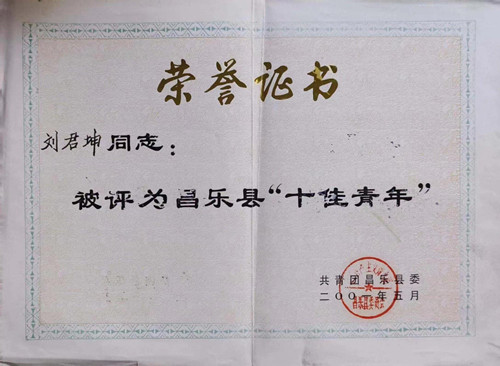 荣誉证书
刘君坤同志：
被评为昌乐县“十佳青年”
共青团昌乐县委
二〇〇一年五月